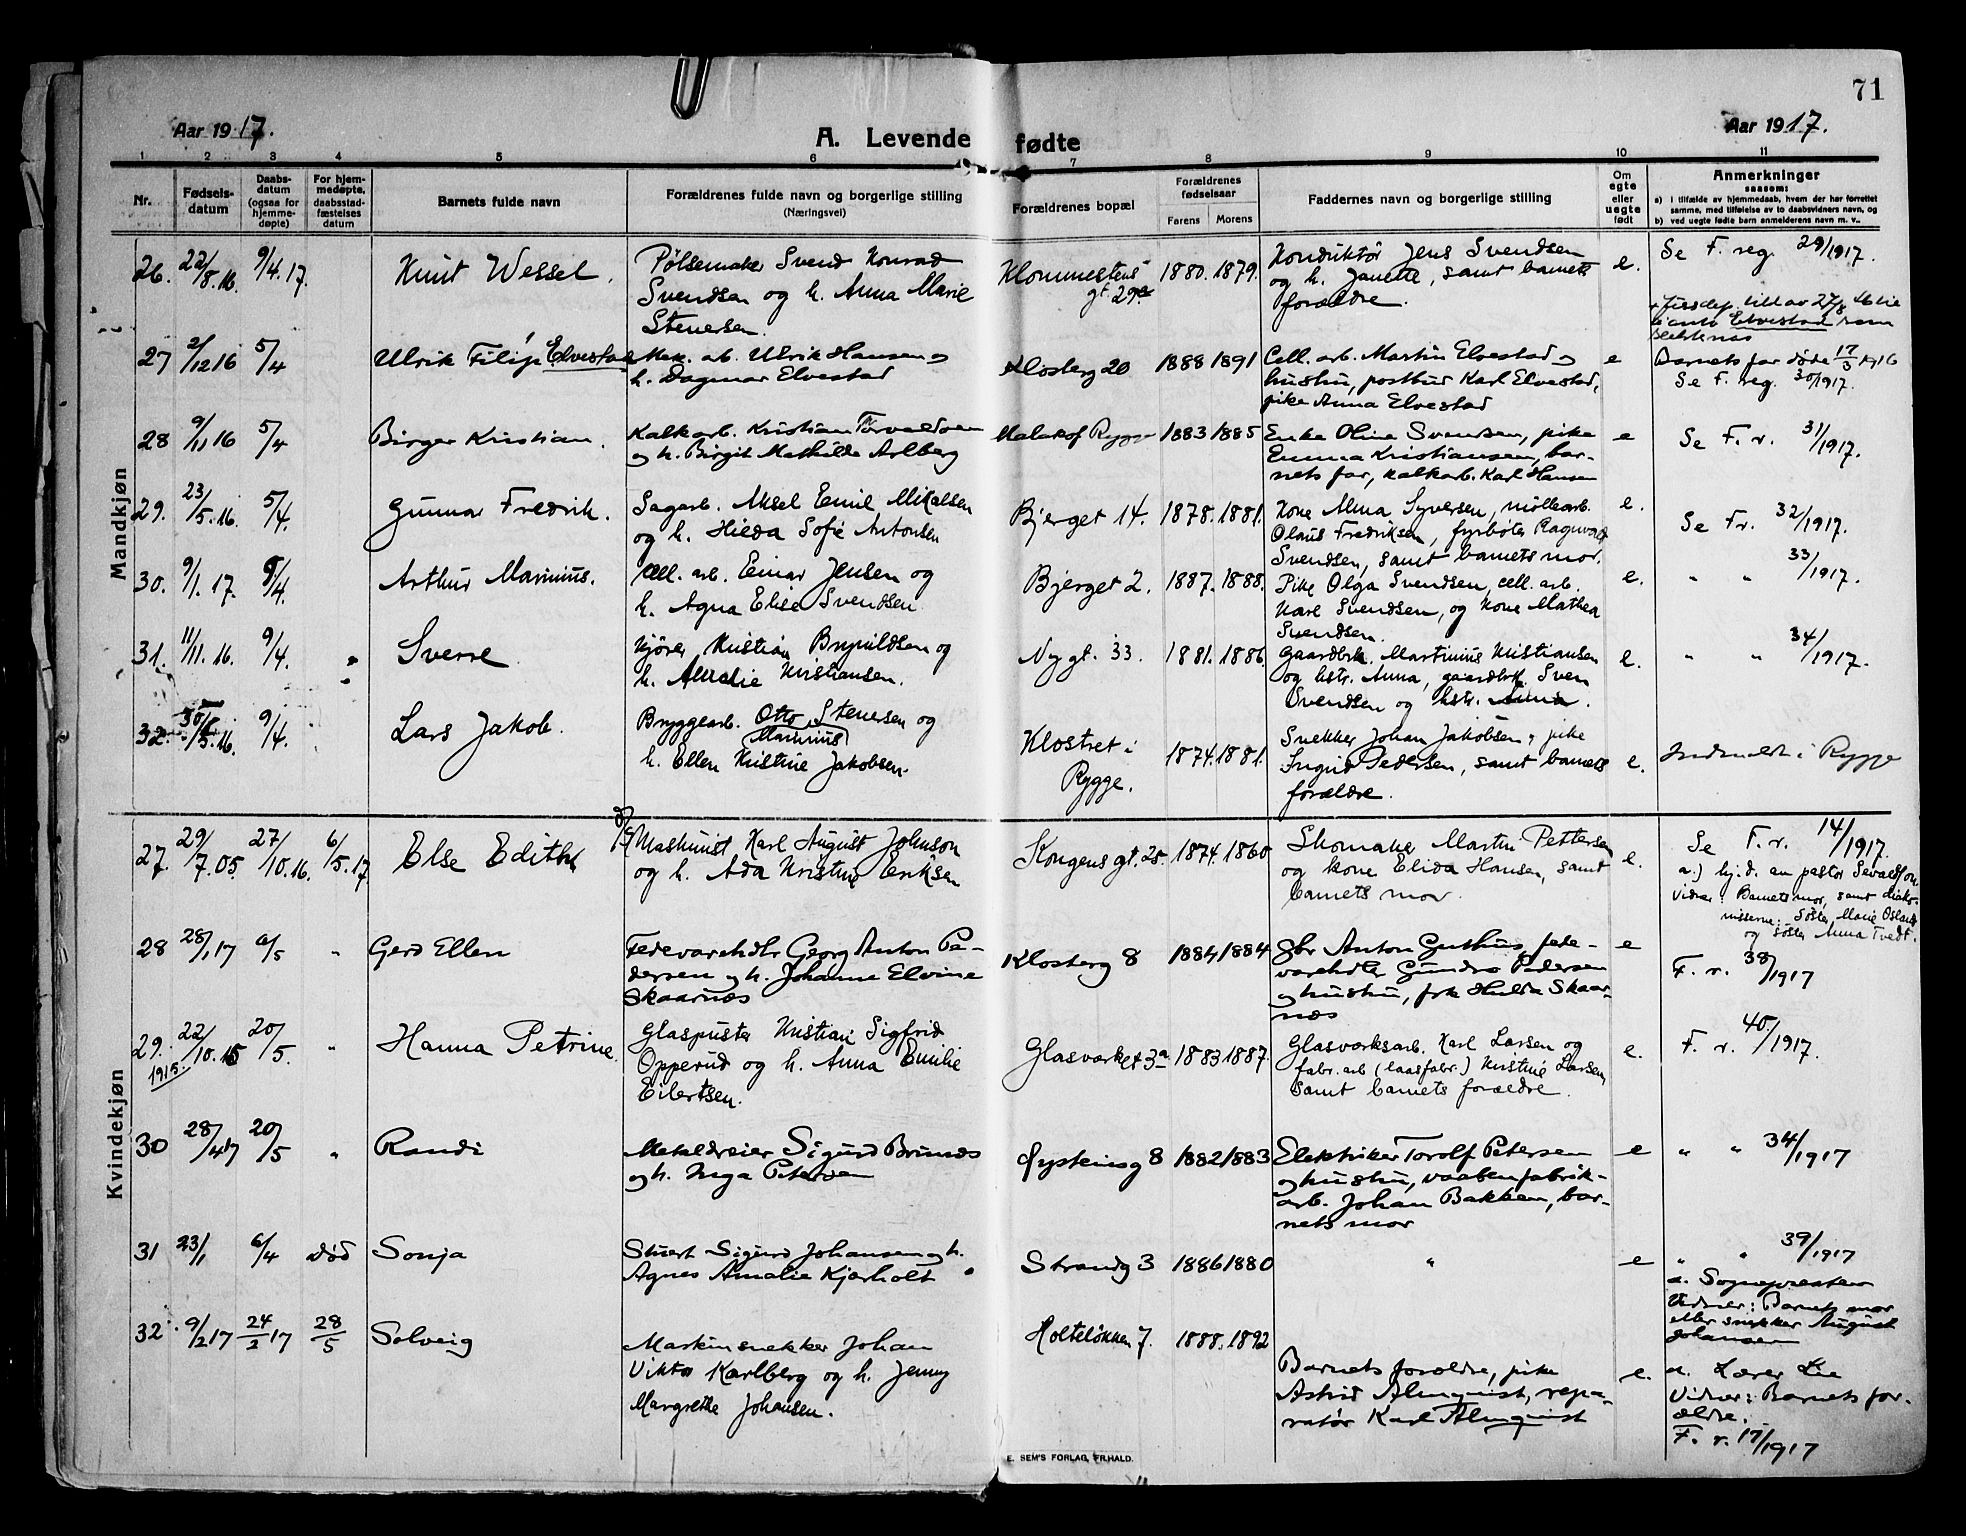 71
Aar 1917.
A. Levende fødte
Aar 1917.
1 2 3 4 5 6 7 8 9 10 11
Nr.
Fødsels-
datum
Daabs-
datum
(ogsaa for
hjemme-
døpte)
For hjem-
medøpte,
daabsstad-
fæstelses
datum
Barnets fulde navn
Forældrenes fulde navn og borgerlige stilling
(Næringsvei)
Forældrenes bopæl
Forældrenes
fødselsaar
Farens Morens
Faddernes navn og borgerlige stilling
Om
egte
eller
uegte
født
Anmerkninger
saasom:
a) i tilfælde av hjemmedaab, hvem der har forrettet
samme, med tilføielse av to daabsvidners navn, og
b) ved uegte fødte barn anmelderens navn m. v..
Mandkjøn
26. 22/8.16. 9/4.17. Knut Wessel.
Pølsemaker Svend Konrad
Svendsen og h. Anna Marie
Stenersen.
1880. 1879.
Konduktør Jens Svendsen
og h. Janette, samt barnets
forældre.
e.
Se F. reg. 29/1917.
27 2/12 16 5/4 Ulrik Filip Elvestad
Mek. arb. Ulrik Hansen og
h. Dagmar Elvestad
Klosterg 20 1888 1891
Cell. arb. Martin Elvestad og
hustru, postbud Karl Elvestad,
pike Anna Elvestad
e
Elvestad som
Barnets far døde 17/3 1916
Se F. reg. 30/1917.
28 9/11 16 5/4 Birger Kristian.
Kalkarb. Kristian Torvaldsen
og h. Birgit Mathilde Arlberg
Malakof Rygge 1883 1885
Enke Oline Svendsen, pike
Emma Kristiansen, bar-
nets far, kalkarb. Karl Hansen
e
Se F. r. 31/1917.
29. 23/5.16. 5/4. Gunnar Fredrik.
Sagarb. Aksel Emil Mikalsen
og h. Hilda Sofie Antonsen
Bjerget 14. 1878. 1881.
Kone Alma Syversen, møllearb.
Olaus Fredriksen, fyrbøter Ragnvald
Svendsen, samt barnets mor.
e.
Se Fr. 32/1917.
30. 9/1. 17. 9/4. Arthur Marinius.
Cell. arb. Einar Jensen og
h. Agna Elise Svendsen.
Bjerget 2. 1887. 1888.
Pike Olga Svendsen, cell. arb.
Karl Svendsen, og kone Mathea
Svendsen.
e.
" " 33/1917.
31. 11/11. 16. 9/4. Sverre.
Kjører Kristian Brynildsen og
h. Amalie Kristiansen.
Ny gt. 33. 1881. 1886.
Gaardbrk. Martinius Kristiansen
og hstr. Anna, gaardbrk. Sven
Svendsen og hstr. Anna.
e.
" " 34/1917.
32. 9/4. Lars Jakob.
Bryggearb. Otto Stenersen og
Marinius
h. Ellen Kristine Jakobsen.
Klostret i
Rygge.
1874. 1881.
Snekker Johan Jakobsen, pike
Ingrid Pedersen, samt barnets
forældre.
e.
Indmeldt i Rygge
Kvindekjøn
27. 29/7.05. 27/10.16. 6/5.17. Else Edith
Maskinist Karl August Johnson
og h. Ada Kristine Eriksen
Kongens gt. 25. 1874. 1860
Skomaker Martin Pettersen
og kone Elida Hansen, samt
barnets mor.
e.
Se F. r. 14/1917.
a.) hj. d. av pastor Sevaldson
Vidner: Barnets mor, samt diako-
nisserne: Søster Marie
og søster Anna Tvedt.
28 28/1 17 6/5 " Gerd Ellen
Fedevarehdlr Georg Anton Pe-
dersen og h. Johanne Elvine
Skaarnæs
Klosterg 8 1884 1884
Gbr Anton Guthus, fede-
varehdler Gundro Pedersen
og hustru, frk Hulda Skaar-
næs
e
F. r. 38/1917
29. 22/10.15 20/5. " Hanna Petrine.
1915.
Glaspuster Kristian Sigfrid
Opperud og h. Anna Emilie
Eilertsen.
Glasværket 3a 1883 1887.
Glasværksarb. Karl Larsen og
fabr. arb (laasfabr.) Kristine Larsen,
samt barnets forældre.
e.
F. r. 40/1917.
30 28/4 17 20/5 " Randi
Metaldreier Sigurd Brunæs
og h. Inga Petersen
Øysteinsg 8 1882 1883
Elektriker Torolf Petersen
og hustru, vaabenfabrik-
arb. Johan Bakken, bar-
nets mor
e
" " 34/1917
31 23/1 6/4 død Sonja
Stuert Sigurd Johansen og h.
Agnes Amalie Kjærholt
Strandg 3 1886 1880
"
e
" " 39/1917
a. Sognepresten
Vidner: Barnets mor
eller snekker August
Johansen
32. 9/2 17 24/2 17 28/5 Solveig
Maskinsnekker Johan
Viktor Karlberg og h. Jenny
Margrethe Johansen.
Holteløkken 7. 1888. 1892
Barnets forældre, pike
Astrid Almquist, repa-
ratør Karl Almquist
e.
a. Lærer Lie
Vidner: Barnets for-
ældre.
F. r. 17/1917
E. SEM'S FORLAG, FR.HALD.